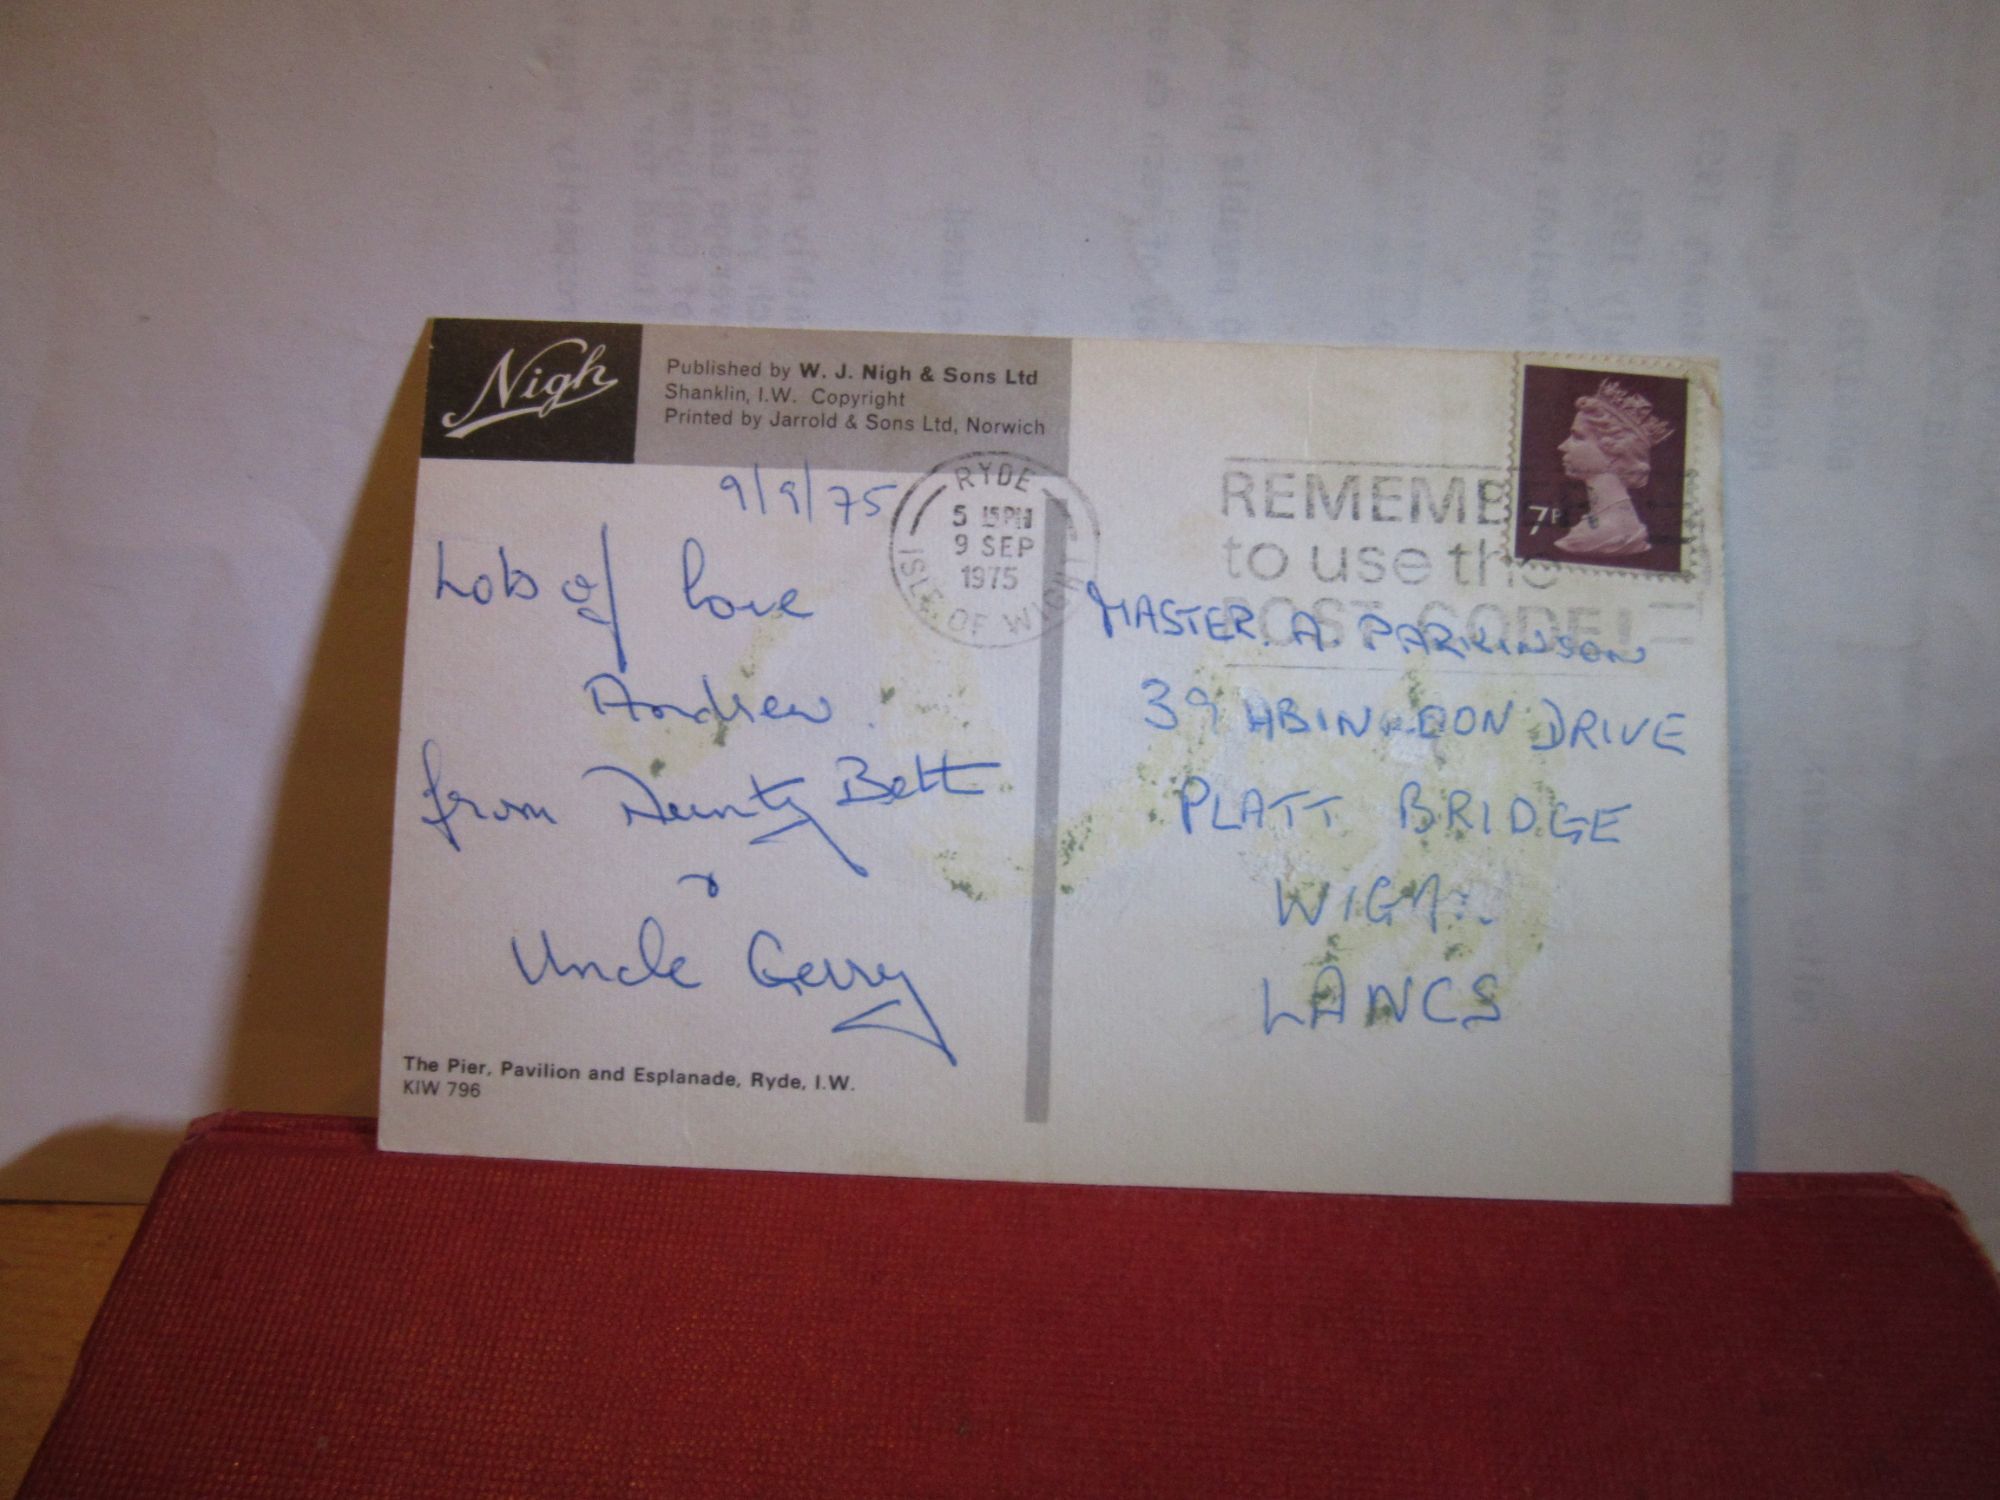 Nigh
Published by W. J. Nigh & Sons Ltd
Shanklin, I.W. Copyright
Printed by Jarrold & Sons Ltd, Norwich
9/9/75
Lots of love
Andrew.
from Aunty Bett
&
Uncle Gerry
The Pier, Pavilion and Esplanade, Ryde, I.W.
KIW 796
RYDE
5 15 PM
9 SEP
1975
ISLE OF WIGHT
REMEMBER
to use the
POST CODE!
7P
MASTER. A. PARKINSON
39 ABINGDON DRIVE
PLATT BRIDGE
WIGAN.
LANCS